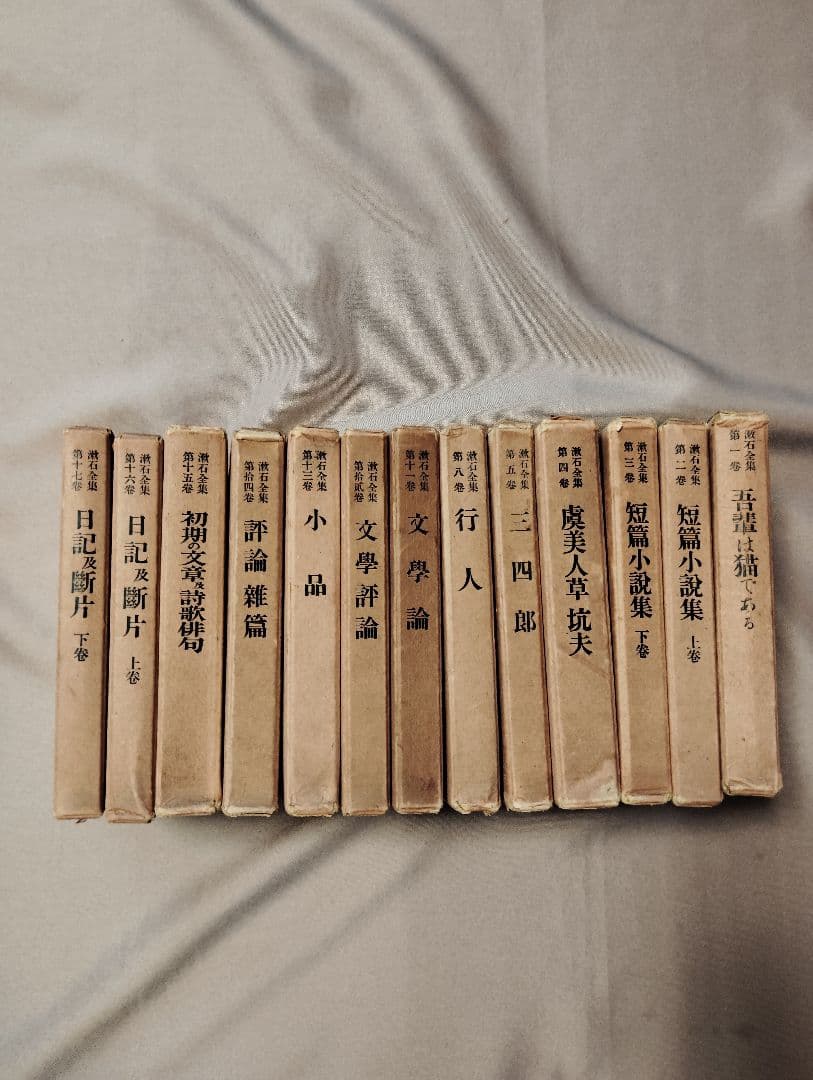 漱石全集
第一卷
吾輩は猫である
漱石全集
第二卷
短篇小說集 上卷
漱石全集
第三卷
短篇小說集 下卷
漱石全集
第四卷
虞美人草 坑夫
漱石全集
第五卷
三四郎
漱石全集
第八卷
行人
漱石全集
第十一卷
文學論
漱石全集
第拾貳卷
文學評論
漱石全集
第十三卷
小品
漱石全集
第拾四卷
評論雜篇
漱石全集
第十五卷
初期の文章及詩歌俳句
漱石全集
第十六卷
日記及斷片 上卷
漱石全集
第十七卷
日記及斷片 下卷